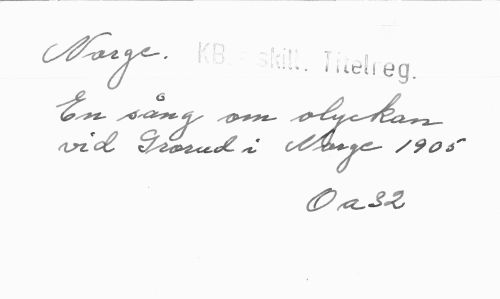 Norge. KB. skill. Titelreg.
En sång om olyckan
vid Grorud i Norge 1905
Oa32